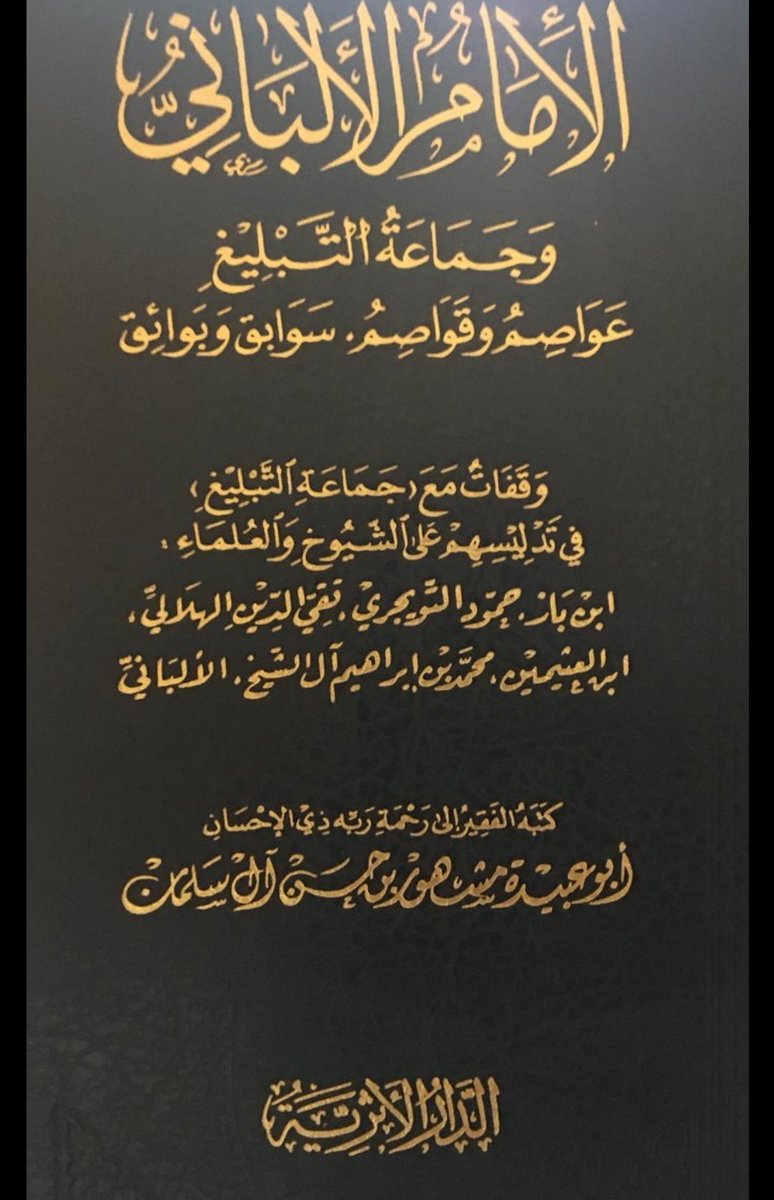 الإِمَامُ الأَلْبَانِيُّ
وَجَمَاعَةُ التَّبْلِيْغِ
عَوَاصِمُ وَقَوَاصِمُ. سَوَابِق وَبَوائِق
وَقَفَاتٌ مَعَ (جَمَاعَةِ التَّبْلِيْغِ)
فِي تَدْلِيْسِهِمْ عَلَى الشُّيُوخِ وَالعُلَمَاءِ :
ابْن بَاز، حمود التّويجري، تقيّ الدّين الهلاليّ،
ابن العثيمين، محمّد بن إبراهيم آل الشّيخ، الألبانيّ
كَتَبَهُ الفَقِيْرُ إِلَى رَحْمَةِ رَبِّه ذِيْ الإِحْسَانِ
أبو عبيدة مشهور بن حسن آل سلمان
الدَّارُ الأَثَرِيَّةُ